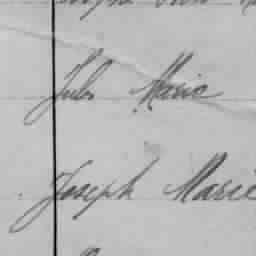 Joseph
Jules Marie
Joseph Marie